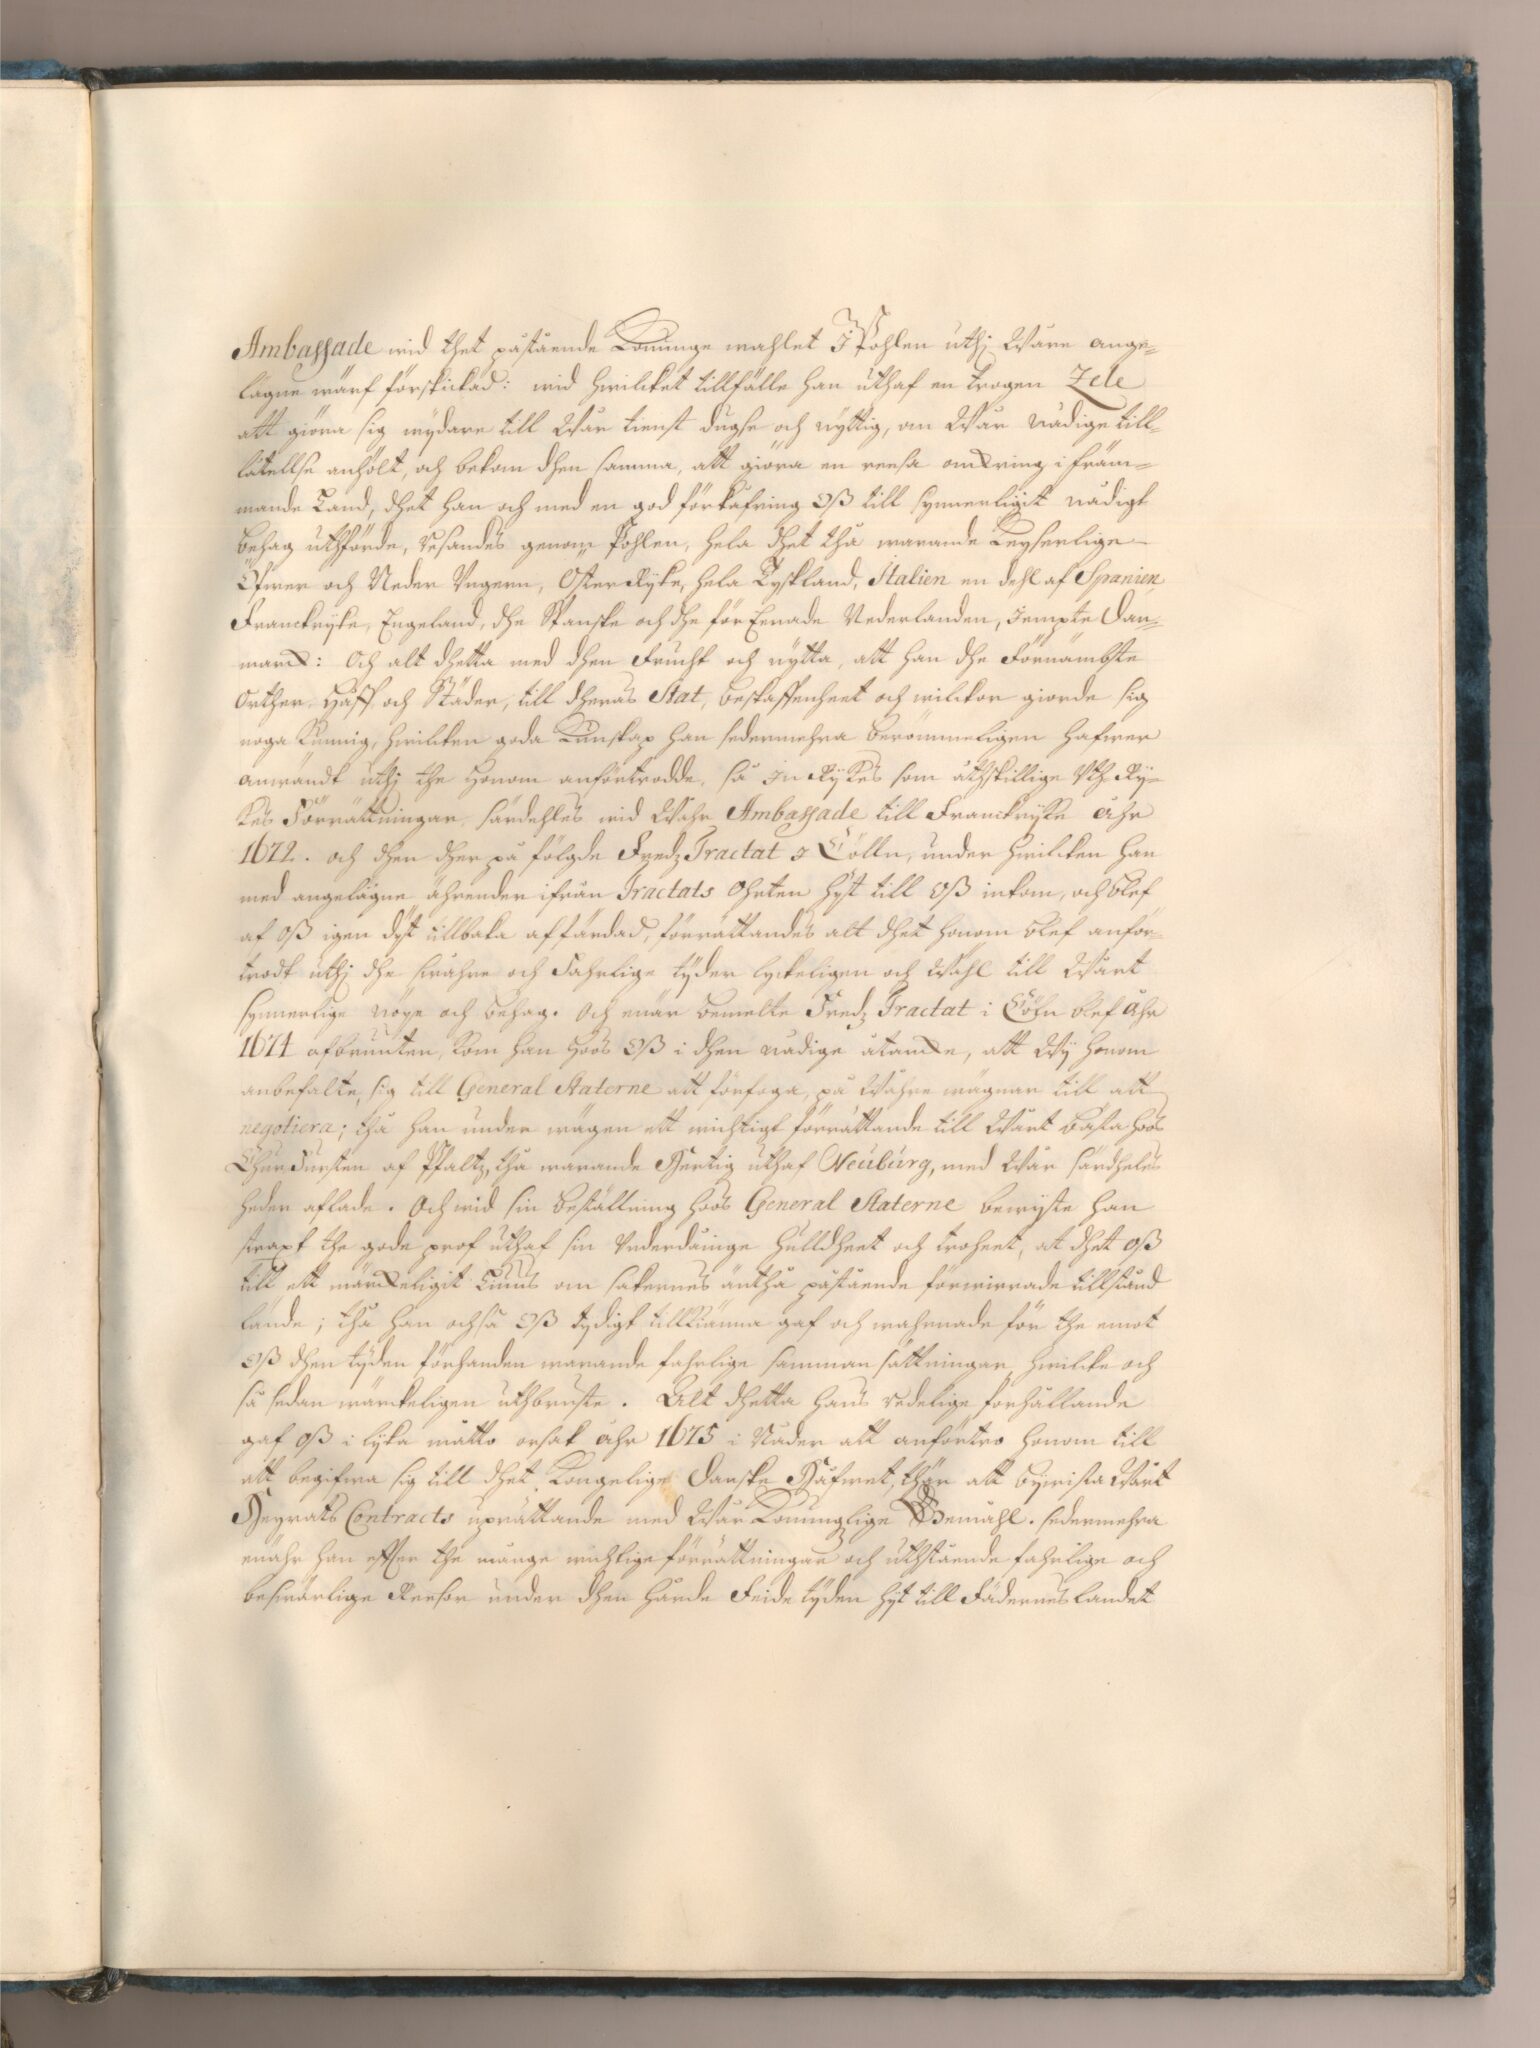 Ambassade wid thet påstående Konunge wahlet J Pohlen uthj Wåre ange=
lägne wärf förskickad: wid hwilcket tillfälle han uthaf en trogen Zele
att giöra sig wydare till Wår tienst dugse och nyttig, om Wår nådige till=
låtellse anhölt, och bekom dhen samma, att giöra en reesa omkring i främ=
mande Land, dhet han och med en god förkåfring Oß till synnerligit nådigt
behag uthförde, resandes genom Pohlen, hela dhet thå warande Keyserlige
Öfwer och Neder Ungern, Österryke, hela Tyskland, Italien en dehl af Spanien,
Franckryke, Engeland, dhe Spanske och dhe för Eenade Nederlanden, jempte Dan=
marck: Och alt dhetta med dhen Frucht och nytta, att han dhe Förnämbste
Orther, Håff och Städer, till dheras Stat, beskaffenheet och wilckor giorde sig
noga kunnig, hwilcken goda Kunskap han sedermehra berömmeligen hafwer
anwändt uthj the honom anförtrodde, så in Rykes som åthskillige Uth Ry=
kes Förrättningar, särdehles wid Wåhr Ambassade till Franckryke åhr
1672. och dhen dher på fölgde Fredz Tractat i Cölln, under hwilcken han
med angelägne ährender ifrån Tractats Ohrten hyt till Oß inkom, och blef
af Oß igen dyt tillbaka affärdad, förrättandes alt dhet honom blef anför=
trodt uthj dhe swåhre och Fahrlige tyder lyckeligen och Wähl till Wårt
synnerlige nöye och behag. Och enär bemelte Fredz Tractat i Cöln blef åhr
1674 afbruuten, kom han hoos Oß i dhen nådige åtancke, att Wy honom
anbefalte, sig till General Staterne att förfoga, på Wåhre wägnar till att
negotiera; thå han under wägen ett wichtigt förrättande till Wårt bästa hoos
ChurFursten af Pfaltz, thå warande Hertig uthaf Neuburg, med Wår särdheles
heder aflade. Och wid sin beställning hoos General Staterne bewyste han
straxt the gode prof uthaf sin Underdånige hulldheet och troheet, at dhet Oß
till ett märckeligit Liuus om sakernes änthå påstående förwirrade tillstånd
lände; thå han ochså Oß tydigt tillkiänna gaf och wahrnade för the emot
Oß dhen tyden förhanden warande fahrlige samman sättningar, hwilcke och
så sedan wärckeligen uthbruste. Alt dhetta hans redelige förhållande
gaf Oß i lyka måtto orsak åhr 1675 i Nåder att anförtro honom till
att begifwa sig till dhet Kongelige Danske Håfwet, thär att bywista Wårt
Heyrats Contracts uprättande med Wår Konungzlige Gemåhl. Sedermehra
enähr han effter the månge wichtige förrättningar och uthstående fahrlige och
beswärlige Reesor under dhen hårde Feide tyden hyt till Fäderneslandet